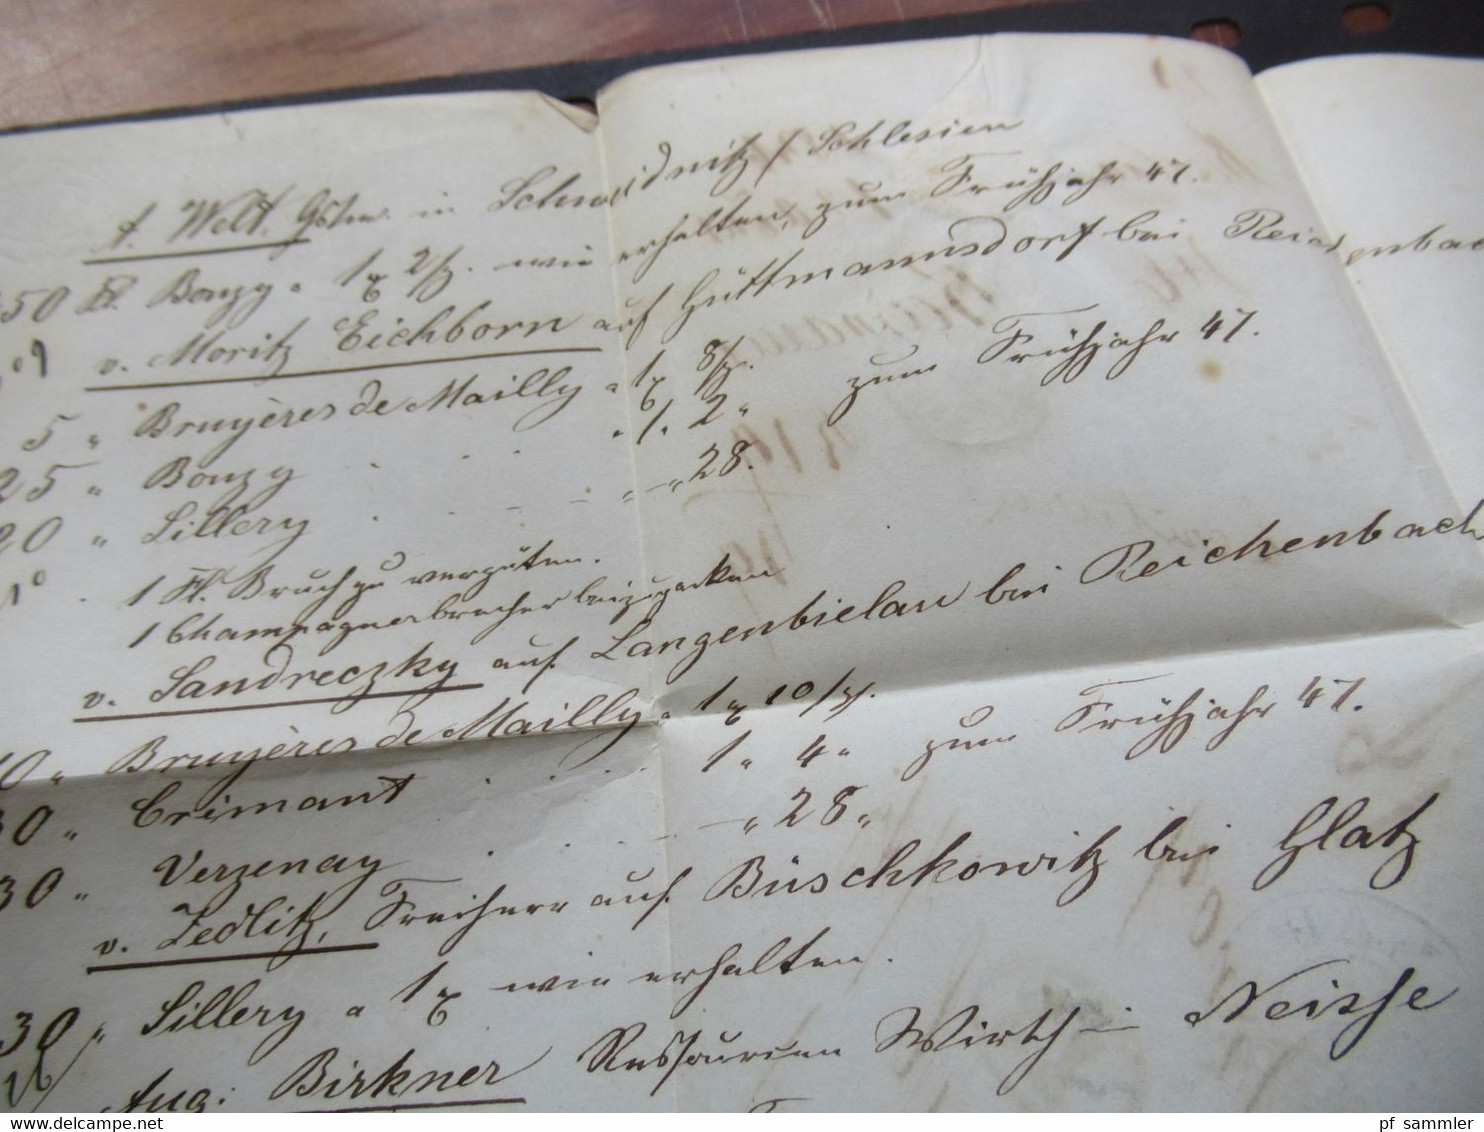 A. Welt. Gstw. in Schweidnitz / Schlesien
50 Fl. Bouzy a 1 2/ wie erhalten, zum Frühjahr 47.
v. Moritz Eichborn auf Hüttmannsdorf bei Reichenbach
5 " Bruyères de Mailly a 1 8/
25 " Bouzy . . . " 1 " 2 " zum Frühjahr 47.
20 " Sillery . . . " — " 28.
1 Fl. Bruch zu vergüten.
1 Champagnerbrecher beizupacken
v. Sandreczky auf Langenbielau bei Reichenbach
10 " Bruyères de Mailly a 1 10/
30 " Crimant . . . 1 " 4 " zum Frühjahr 47.
30 " Verzenay . . . — " 28 "
v. Zedlitz, Freiherr auf Büschkowitz bei Glatz
30 " Sillery a 1 wie erhalten.
Aug: Birkner Ressourcen Wirth in Neisse
pf_sammler